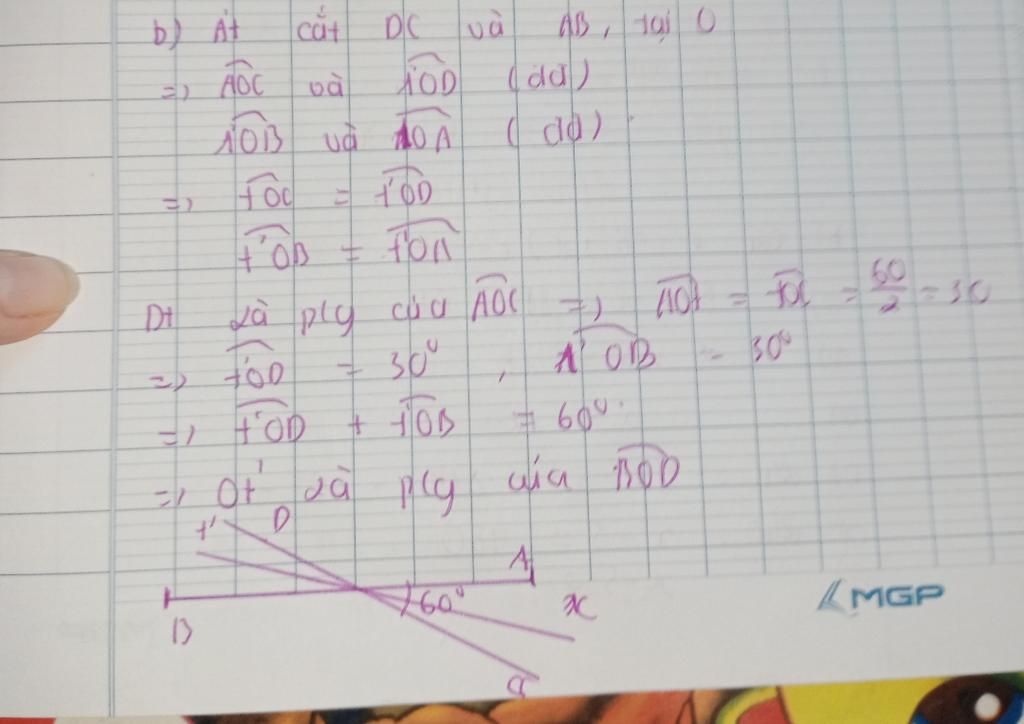 b) At cắt DC và AB, tại O
=> AOC và tOD (dd)
tOB và tOA (dd)
=> tOC = t'OD
t'OB = t'OA
Dt là plg của AOC => AOt = tOC = 60/2 = 30
=> t'OD = 30°, t'OB = 30°
=> t'OD + t'OB = 60°
=> Ot' là plg của BOD
t' D
A
60° x
B
C
MGP